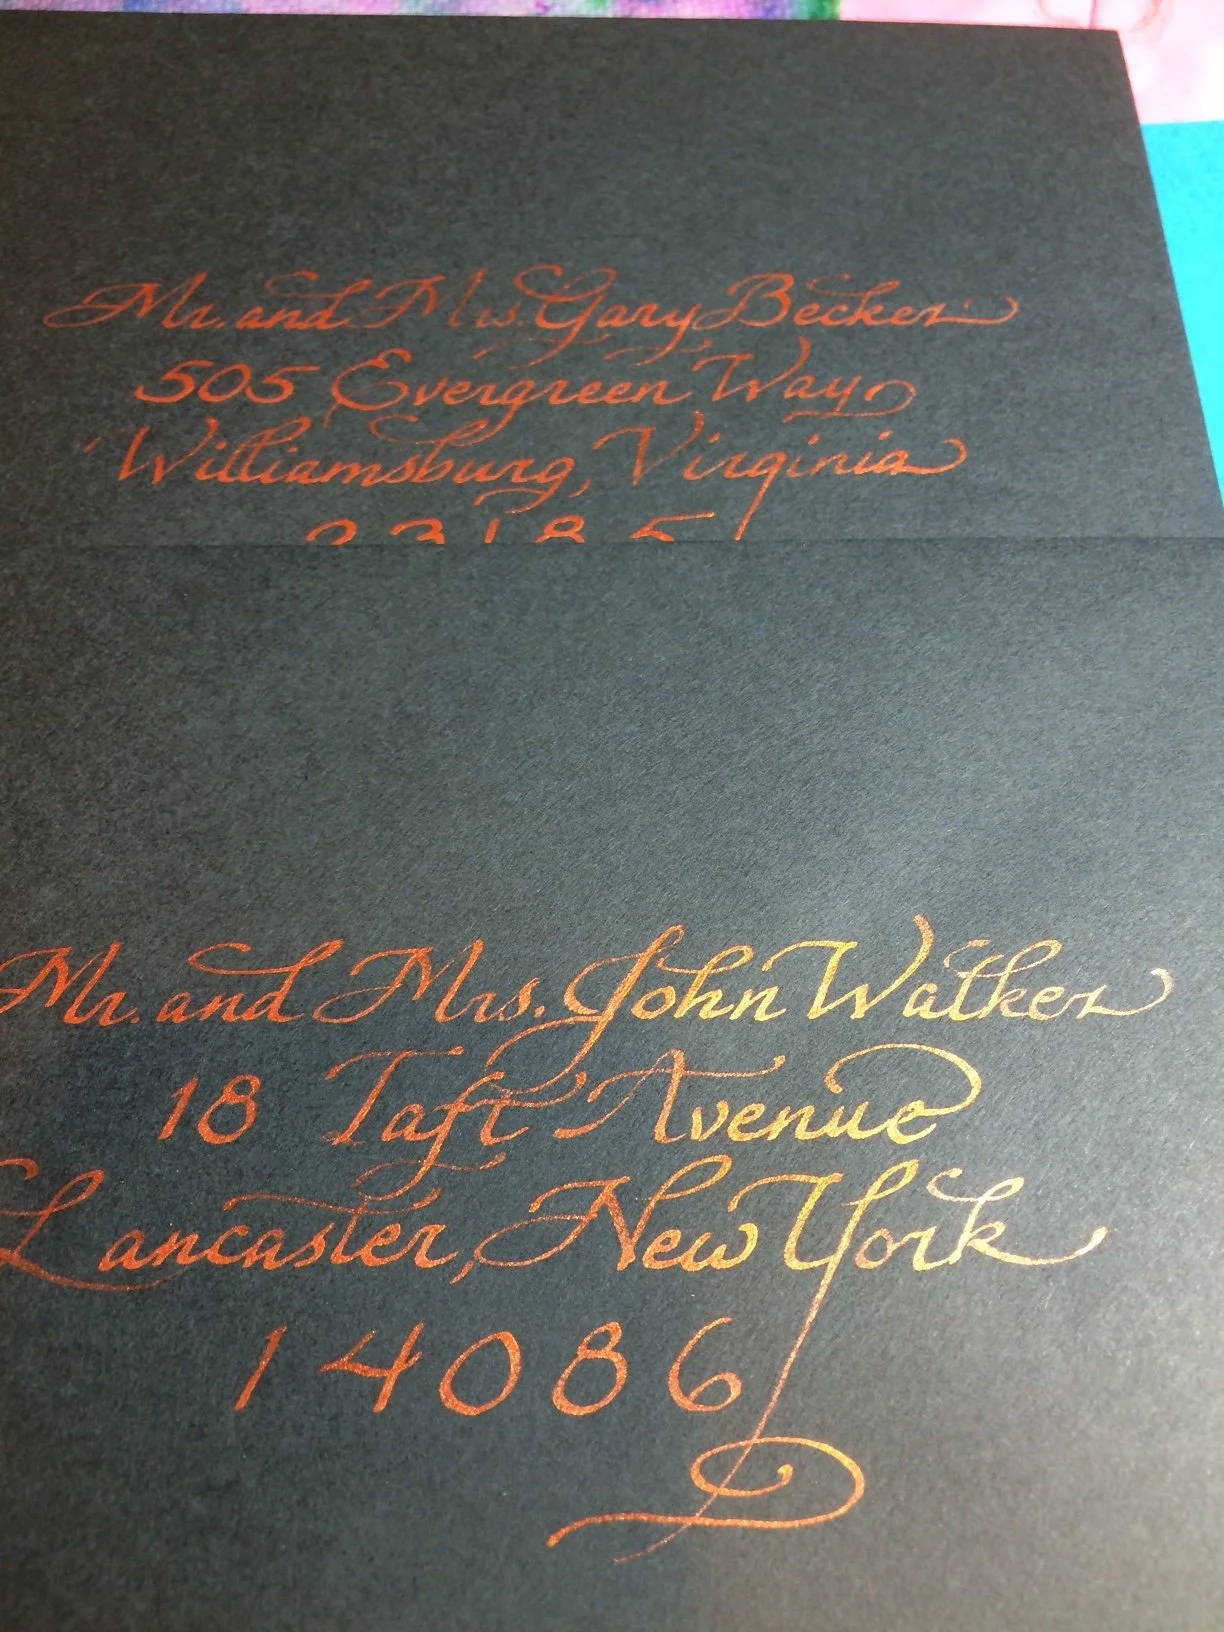 Mr. and Mrs. Gary Becker
505 Evergreen Way
Williamsburg, Virginia
23185
Mr. and Mrs. John Walker
18 Taft Avenue
Lancaster, New York
14086